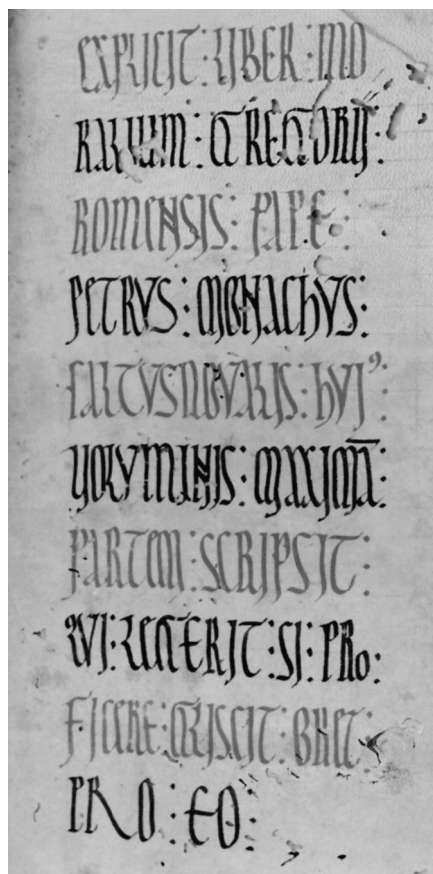 EXPLICIT : LIBER : MO
RALIUM : GREGORII :
ROMENSIS : PAPE :
PETRVS : MONACHVS :
SALTVSNOVALIS : HVJꝰ :
VOLVMINIS : MAXIMĀ :
PARTEM : SCRIPSIT :
QVI : LEGERIT : SI : PRO :
FICERE : GLISCIT : ORET :
PRO : EO :